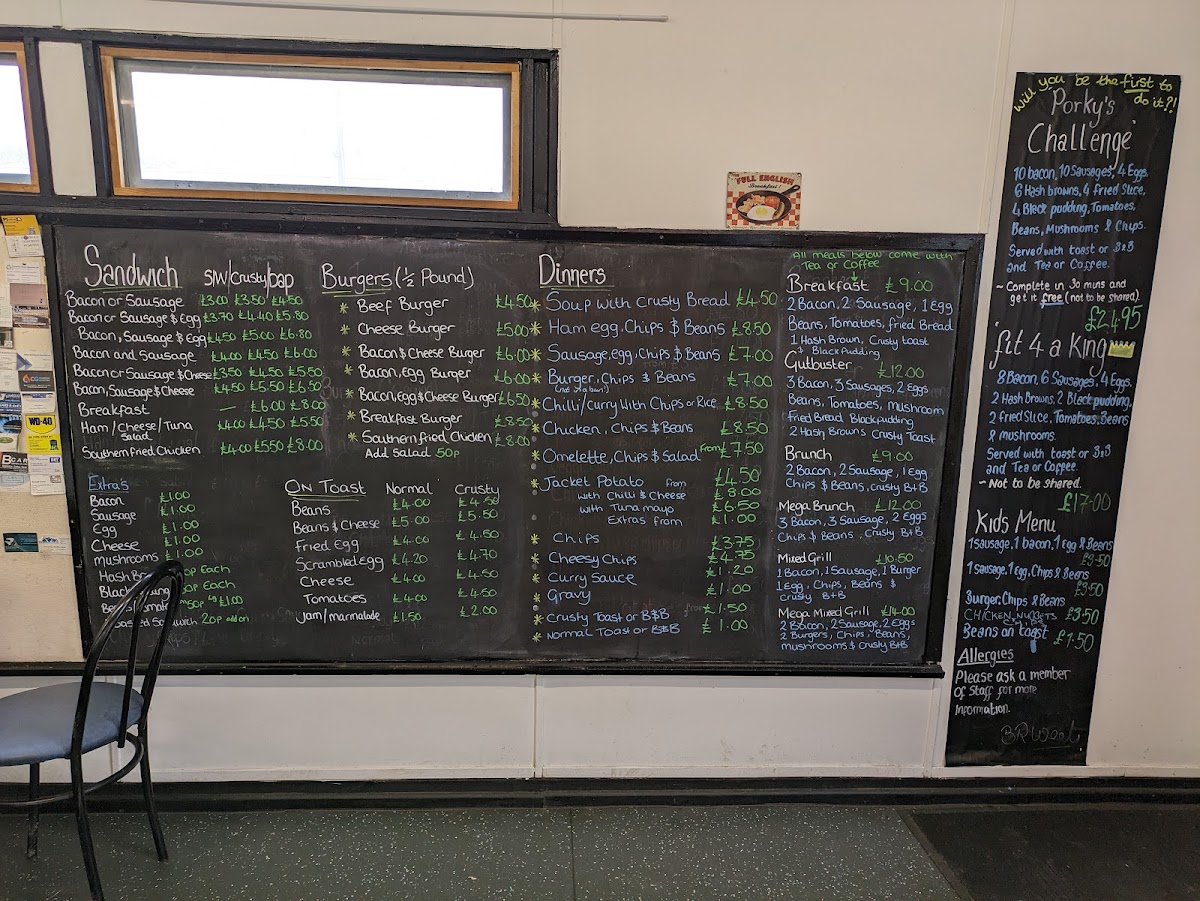 FULL ENGLISH
Breakfast!
Sandwich SW/Crusty/bap
Bacon or Sausage £3.00 £3.50 £4.50
Bacon or Sausage & Egg £3.70 £4.40 £5.80
Bacon, Sausage & Egg £4.50 £5.00 £6.80
Bacon and Sausage £4.00 £4.50 £6.00
Bacon or Sausage & Cheese £3.50 £4.50 £5.50
Bacon, Sausage & Cheese £4.50 £5.50 £6.50
Breakfast — £6.00 £8.00
Ham/cheese/Tuna £4.00 £4.50 £5.50
Salad
Southern fried Chicken £4.00 £5.50 £8.00
Extras
Bacon £1.00
Sausage £1.00
Egg £1.00
Cheese £1.00
mushrooms £1.00
Hash Br
Each
Black
Each
50p £1.00
Sandwich 20p add on
Burgers (½ Pound)
Beef Burger £4.50
Cheese Burger £5.00
Bacon & Cheese Burger £6.00
Bacon, Egg Burger £6.00
Bacon, Egg & Cheese Burger £6.50
Breakfast Burger £8.50
Southern fried Chicken £8.00
Add Salad 50p
On Toast Normal Crusty
Beans £4.00 £4.50
Beans & Cheese £5.00 £5.50
Fried Egg £4.00 £4.50
Scrambled Egg £4.20 £4.70
Cheese £4.00 £4.50
Tomatoes £4.00 £4.50
Jam/marmalade £1.50 £2.00
Dinners
Soup with Crusty Bread £4.50
Ham egg, Chips & Beans £8.50
Sausage, egg, Chips & Beans £7.00
Burger, Chips & Beans £7.00
(not in a bun!)
Chilli/curry With Chips or Rice £8.50
Chicken, Chips & Beans £8.50
Omelette, Chips & Salad from £7.50
Jacket Potato from £4.50
with Chilli & Cheese £8.00
with Tuna mayo £6.50
Extras from £1.00
Chips £3.75
Cheesy Chips £4.75
Curry Sauce £1.20
Gravy £1.00
Crusty Toast or B&B £1.50
Normal Toast or B&B £1.00
All meals below come with
Tea or Coffee
Breakfast £9.00
2 Bacon, 2 Sausage, 1 Egg
Beans, Tomatoes, fried Bread
1 Hash Brown, Crusty toast
& Black Pudding
Gutbuster £12.00
3 Bacon, 3 Sausages, 2 Eggs
Beans, Tomatoes, mushroom
Fried Bread Black pudding
2 Hash Browns Crusty Toast
Brunch £9.00
2 Bacon, 2 Sausage, 1 Egg
Chips & Beans, crusty B+B
Mega Brunch £12.00
3 Bacon, 3 Sausage, 2 Eggs
Chips & Beans, Crusty B+B
Mixed Grill £10.50
1 Bacon, 1 Sausage, 1 Burger
1 Egg, Chips, Beans &
Crusty B+B
Mega Mixed Grill £14.00
2 Bacon, 2 Sausage, 2 Eggs
2 Burgers, Chips, Beans,
mushrooms & Crusty B+B
Will you be the first to
do it?!
Porky's
Challenge
10 bacon, 10 Sausages, 4 Eggs.
6 Hash browns, 4 fried Slice,
4 Black pudding, Tomatoes,
Beans, Mushrooms & Chips.
Served with toast or B&B
and Tea or Coffee.
~ Complete in 30 mins and
get it free (not to be shared).
£24.95
fit 4 a King
8 Bacon, 6 Sausages, 4 Eggs,
2 Hash Browns, 2 Black pudding,
2 fried Slice, Tomatoes, Beans
& mushrooms.
Served with toast or B&B
and Tea or Coffee.
~ Not to be shared.
£17.00
Kids Menu
1 sausage, 1 bacon, 1 Egg & Beans
£3.50
1 sausage, 1 Egg, Chips & Beans
£3.50
Burger, Chips & Beans
CHICKEN NUGGETS £3.50
Beans on toast £1.50
Allergies
Please ask a member
of Staff for more
information.
WD-40